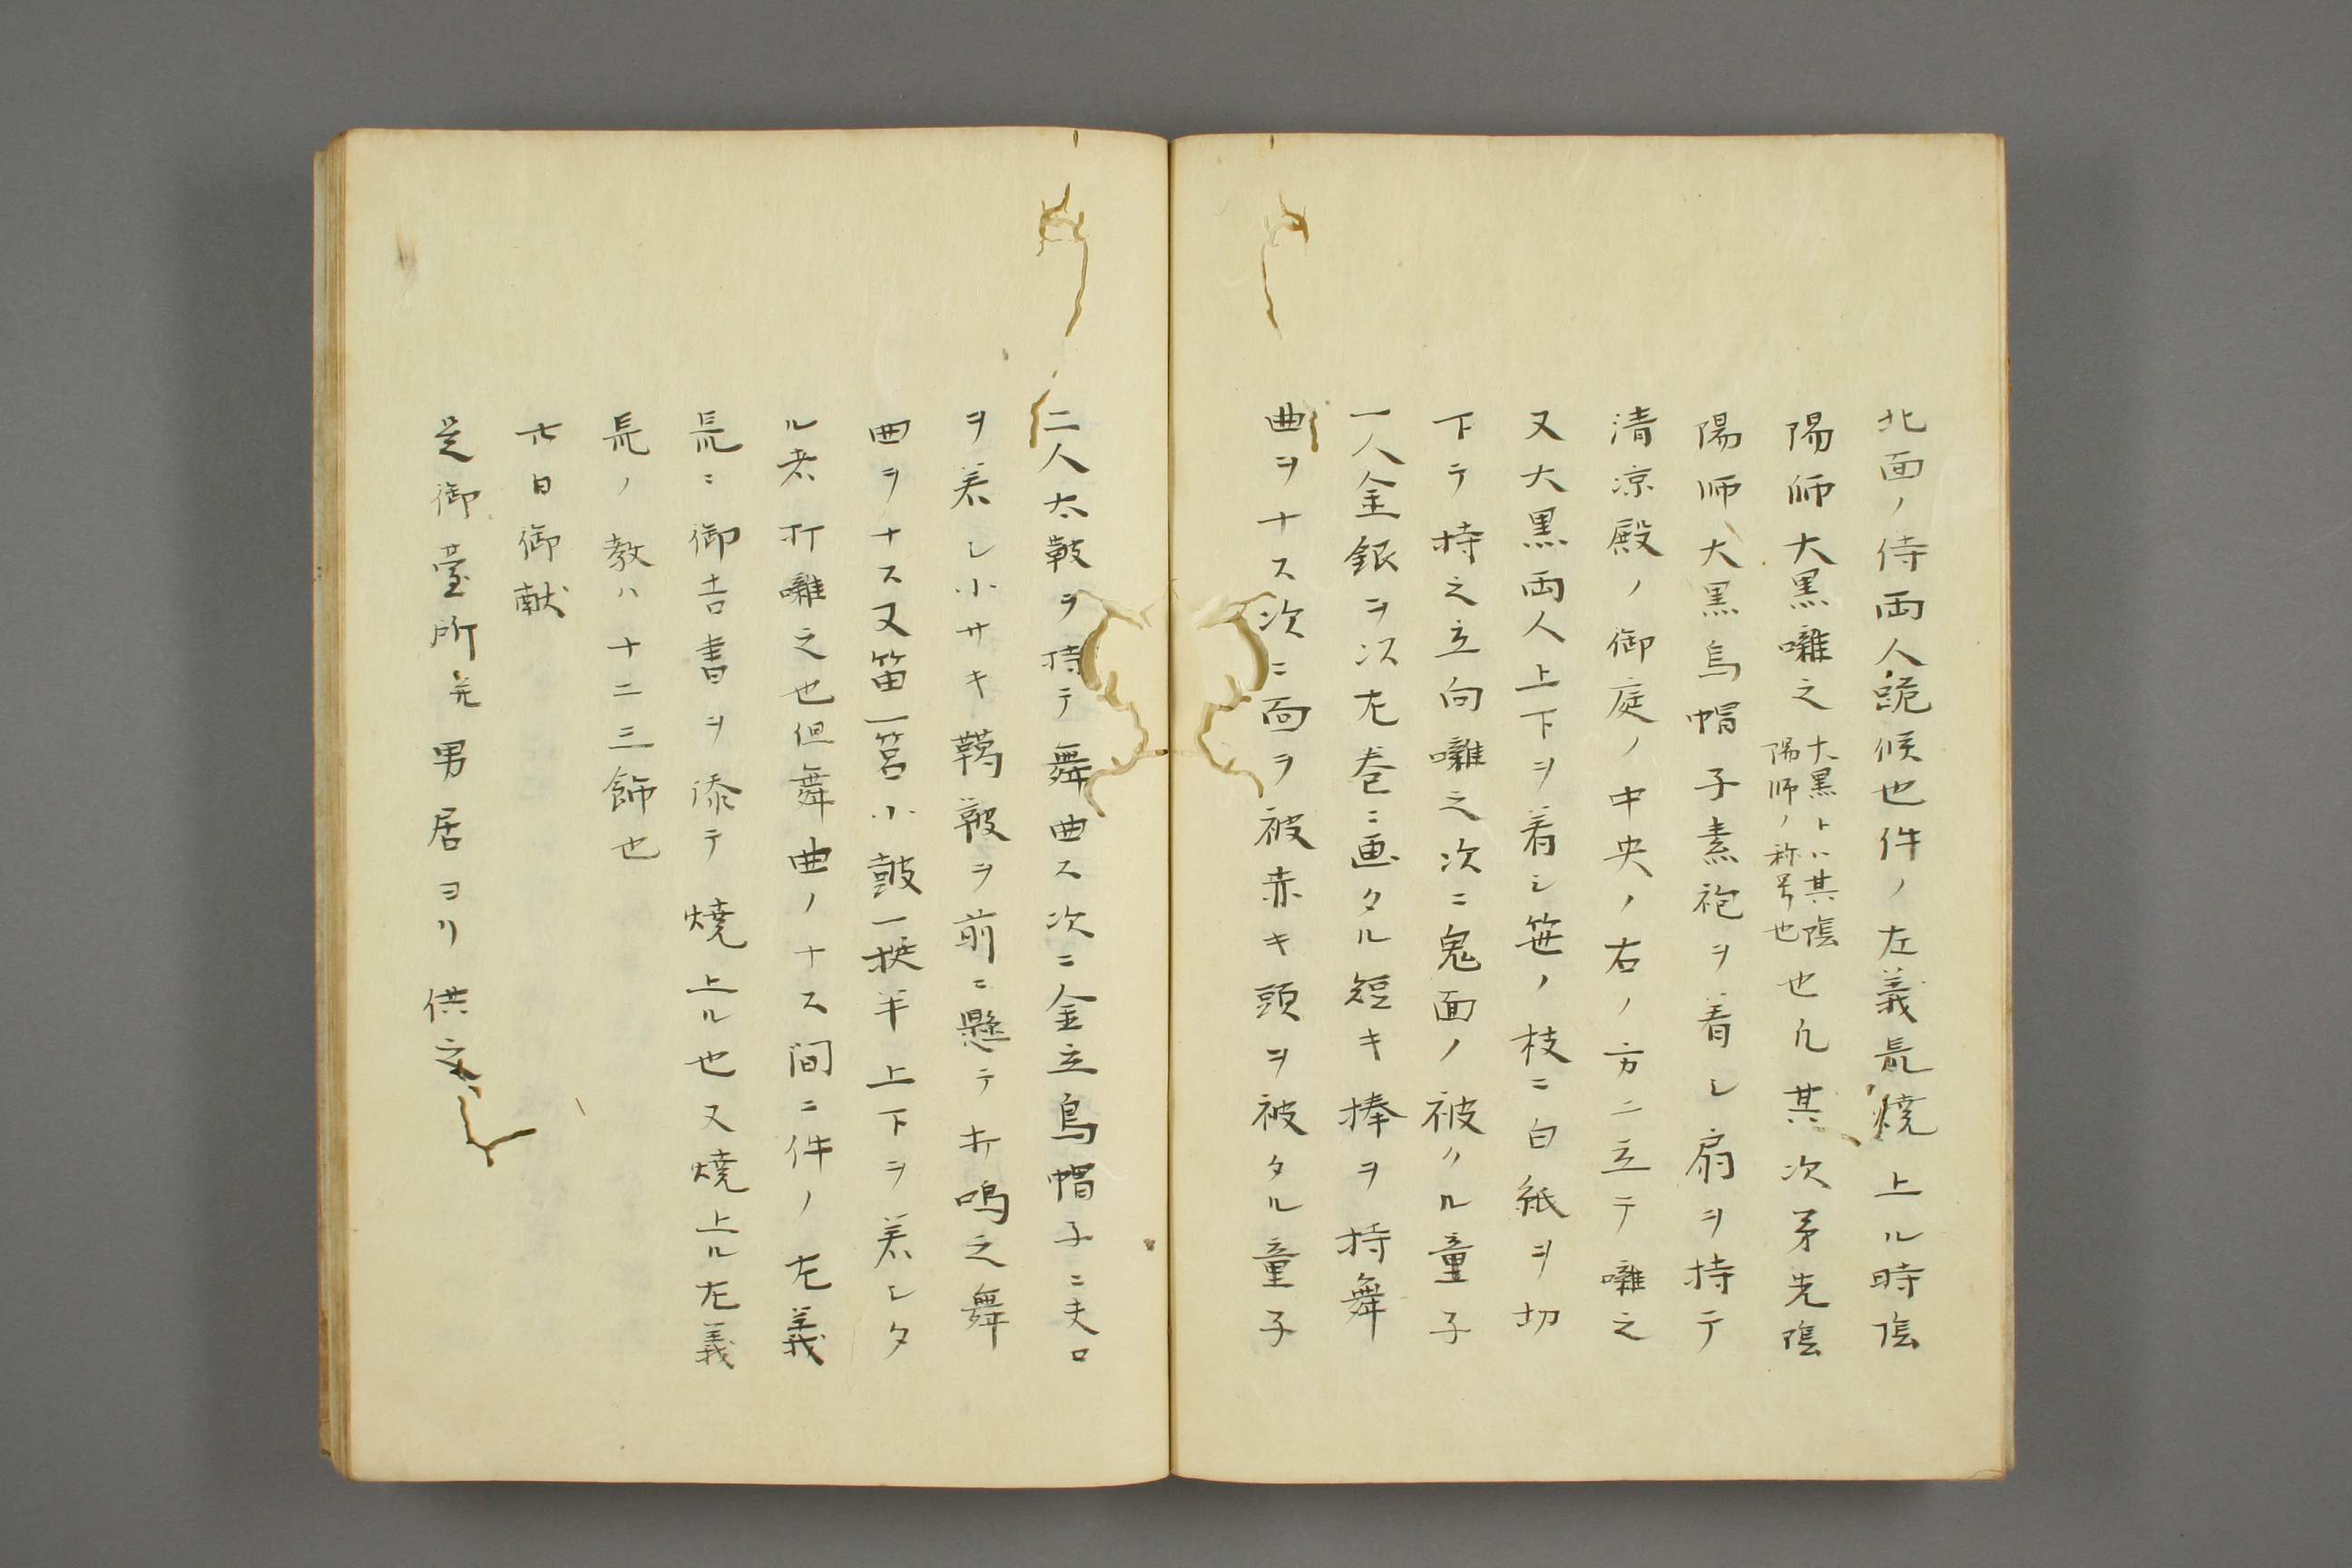 北面ノ侍両人跪候也件ノ左義長焼上ル時陰
陽師大黒囃之
大黒トハ其陰
陽師ノ称号也
也凡其次第先陰
陽師大黒烏帽子素袍ヲ着シ扇ヲ持テ
清凉殿ノ御庭ノ中央ノ右ノ方ニ立テ囃之
又大黒両人上下ヲ着シ笹ノ枝ニ白紙ヲ切
下テ持之立向囃之次ニ鬼面ノ被タル童子
一人金銀ヲ以左巻ニ画タル短キ捧ヲ持舞
曲ヲナス次ニ面ヲ被赤キ頭ヲ被タル童子
二人太鼓ヲ持テ舞曲ス次ニ金立烏帽子ニ大口
ヲ着シ小サキ鞨鼓ヲ前ニ懸テ打鳴之舞
曲ヲナス又笛一管小鼓一挺半上下ヲ着シタ
ル者打囃之也但舞曲ノナス間ニ件ノ左義
長ニ御吉書ヲ添テ焼上ル也又焼上ル左義
長ノ数ハ十二三飾也
廿日御献
是御臺所并男居ヨリ供之